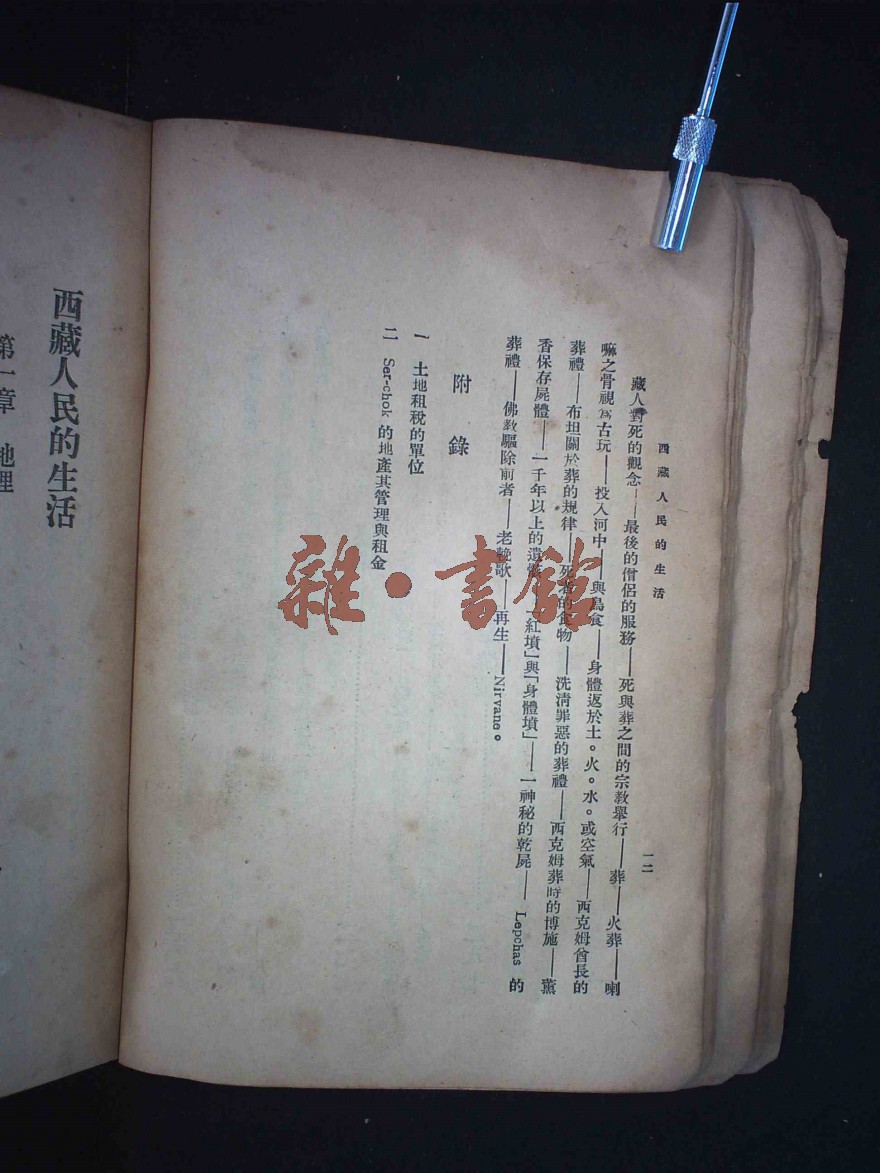 西藏人民的生活
一二
藏人對死的觀念——最後的僧侶的服務——死與葬之間的宗教舉行——葬——火葬——喇
嘛之骨視爲古玩——投入河中——與鳥食——身體返於土。火。水。或空氣——西克姆酋長的
葬禮——布坦關於葬的規律——死者的食物——洗清罪惡的葬禮——西克姆葬時的博施——薰
香保存屍體——一千年以上的遺
「紅墳」與「身體墳」——一神秘的乾屍——Lepchas 的
葬禮——佛教驅除前者——老輓歌——再生——Nirvane。
附錄
一 土地租稅的單位
二 Ser-chok 的地產其管理與租金
西藏人民的生活
第一章 地理
雜·書館